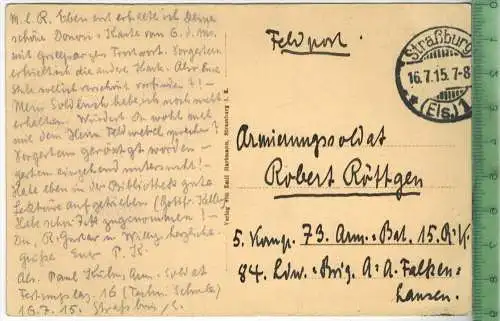 M. l. R. Eben erst erhalte ich Deine
schöne Donon-Karte vom 6. d. Mts.
mit Grillparzers Trostwort. Vorgestern
erhielt ich die andere Karte. Also Eure
Stube selbst verschönt vorfinden! –
Mein Soldbuch habe ich noch nicht
erhalten. Würdest Du wohl mal
mit dem Herrn Feldwebel sprechen?
Vorgestern geröntgt worden –
gestern eingehend untersucht! –
Habe eben in der Bibliothek gute
Lektüre aufgetrieben (Gottfr. Keller)
Habe schon zugenommen! –
Du, R. Gruber u. Willy herzliche
Grüße Euer P. K.
Abs. Paul Kühn, Arm. Soldat
Festungslaz. 16 (Techn. Schule)
16.7.15. Strassburg i/E.
Verlag von Emil Hartmann, Strassburg i. E.
Feldpost.
Straßburg
16.7.15. 7-8
* (Els.) 1
Armierungssoldat
Robert Röttgen
5. Komp. 73. Arm.-Bat. 15. R.K.
84. Ldw.-Brig. A.A. Falken-
hausen.